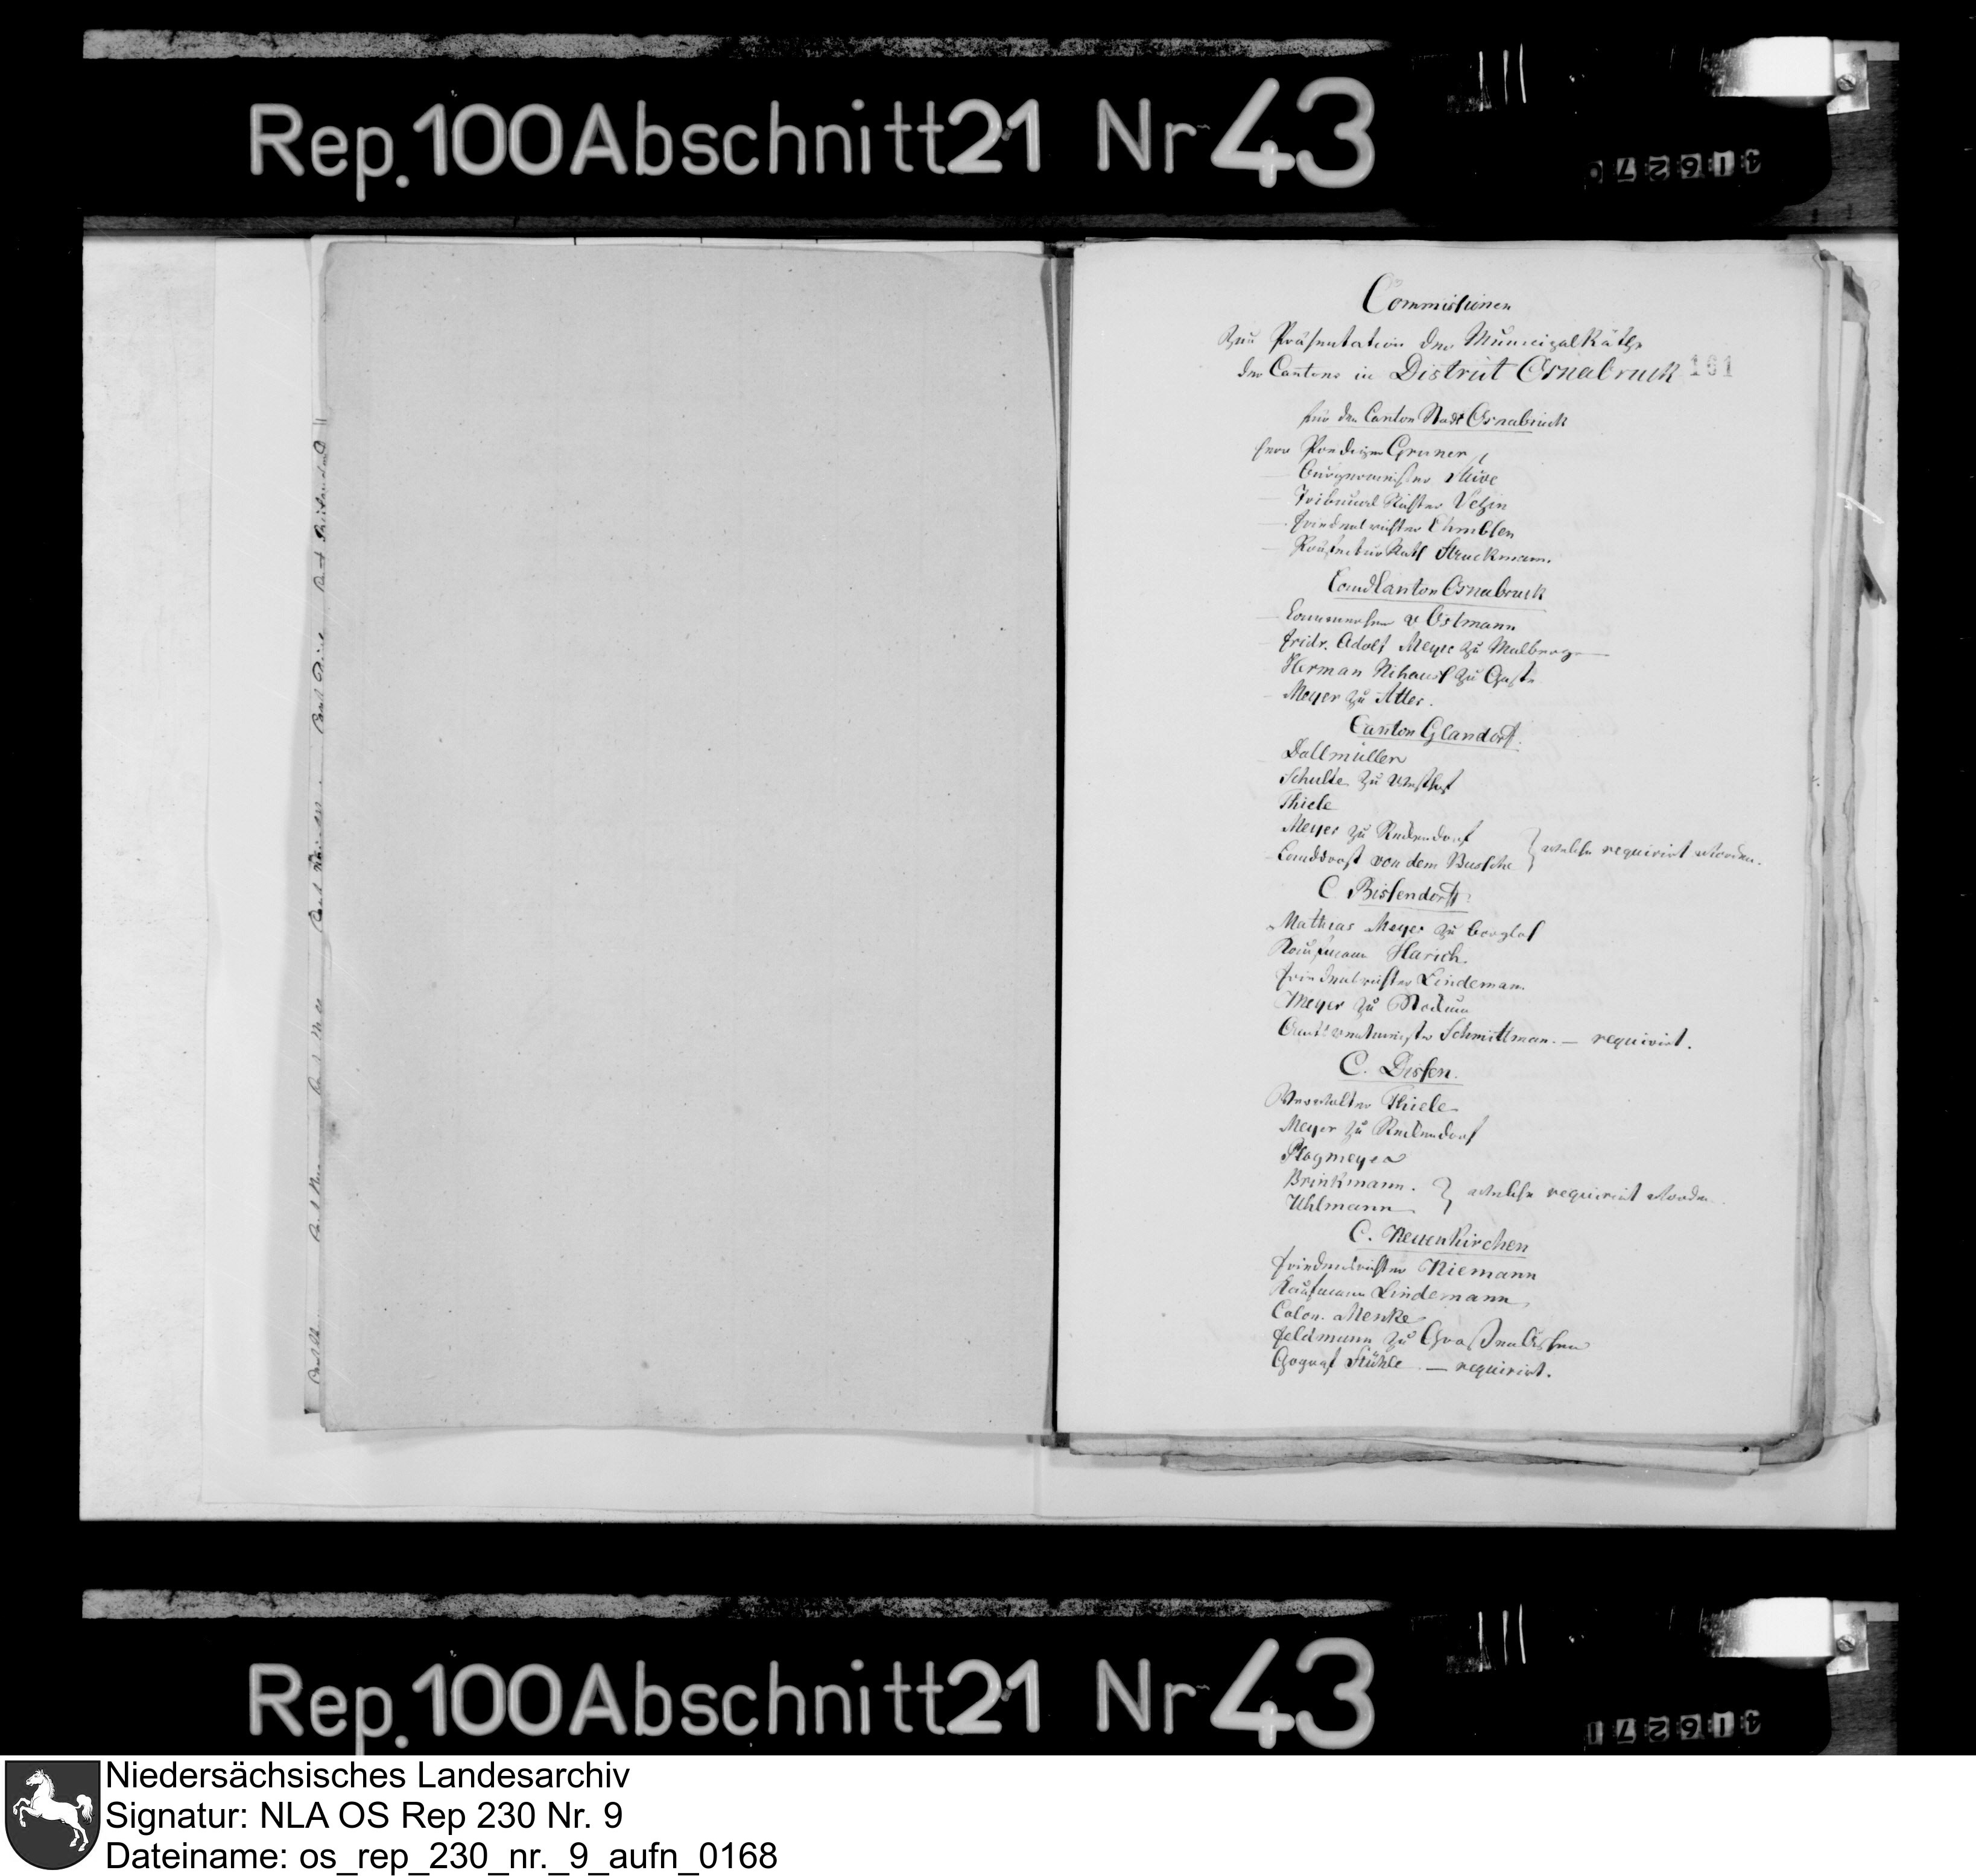 Rep.100Abschnitt21 Nr 43
416270
Commissionen
Zur Präsentation der Municipal Räthe
der Cantons im District Osnabruck 161
für den Canton Stadt Osnabrück
Herr Gruner
— Burgermeister Stüve
— Tribunal Richter Vezin
— Friedensrichter Ehmbsen
— Präfectur Rath Struckmann.
Landcanton Osnabruck
Cammerherr v Ostmann
Fridr. Adolf Meyer zu Malbergen
Herman Nihaus zu Gaste
Meyer zu Atter.
Canton Glandorf.
Dallmüller
Schulte zu
Thiele
Meyer zu Reckendorf
Landdrost von dem Bussche } welche requirirt worden.
C. Bissendorf
Mathias Meyer zu Borgloh
Kaufmann Harich.
Friedensrichter Lindeman
Meyer zu
Schmittman. — requirirt.
C. Dissen.
Verwalter Thiele
Meyer zu Reckendorf
Plagmeyer
Brinkmann.
Uhlmann } welche requirirt worden
C. Neuenkirchen
Friedensrichter Niemann
Kaufmann Lindemann
Colon. Menke
Feldmann zu
Gograf Stühle — requirirt.
Rep.100Abschnitt21 Nr 43
416271
Niedersächsisches Landesarchiv
Signatur: NLA OS Rep 230 Nr. 9
Dateiname: os_rep_230_nr._9_aufn_0168